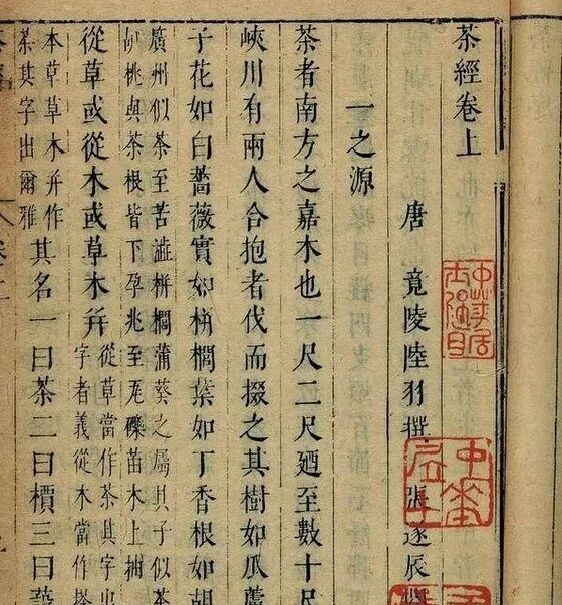 茶經卷上
唐 竟陵陸羽撰 張遂辰
一之源
茶者南方之嘉木也一尺二尺廼至數十尺
峽川有兩人合抱者伐而掇之其樹如瓜蘆
子花如白薔薇實如栟櫚葉如丁香根如胡
廣州似茶至苦澁栟櫚蒲葵之屬其子似茶
桃與茶根皆下孕兆至瓦礫苗木上抽
從草或從木或草木并
從草當作茶其字出
字者義從木當作
本草草木并作
茶其字出爾雅
其名一曰茶二曰檟三曰蔎